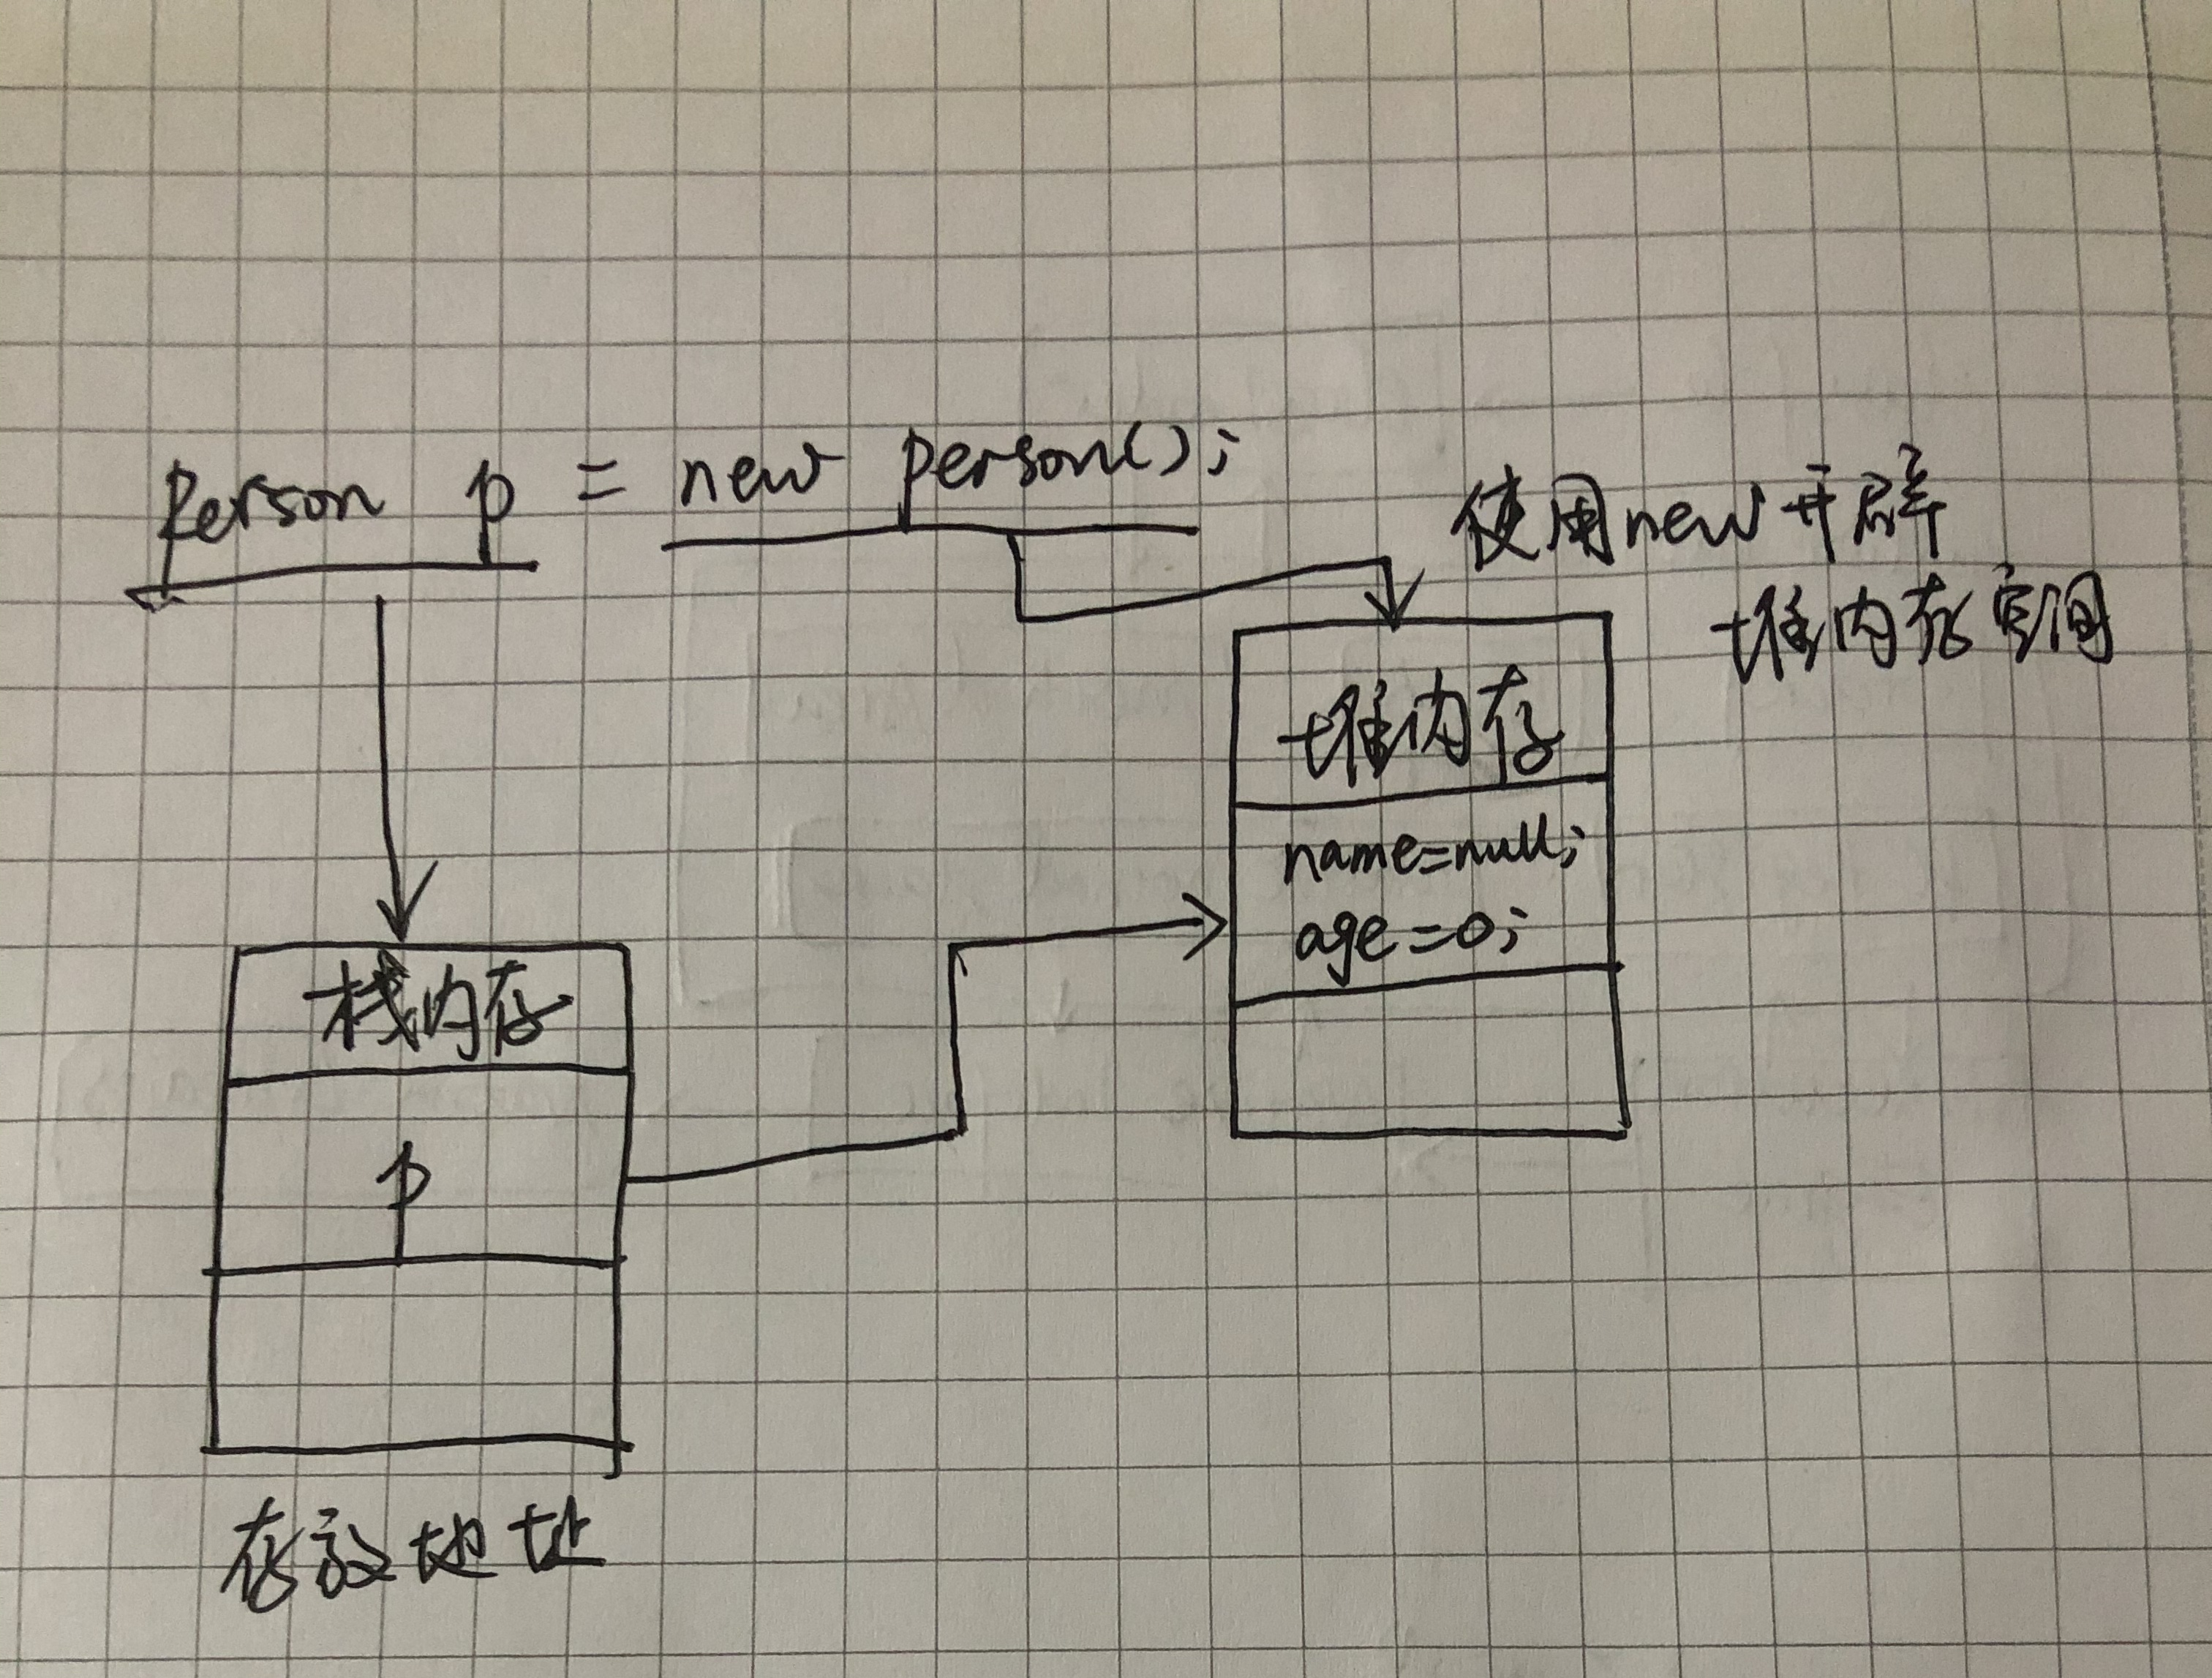 Person p = new person();
使用new开辟
堆内存空间
堆内存
name=null;
age=0;
栈内存
p
存放地址